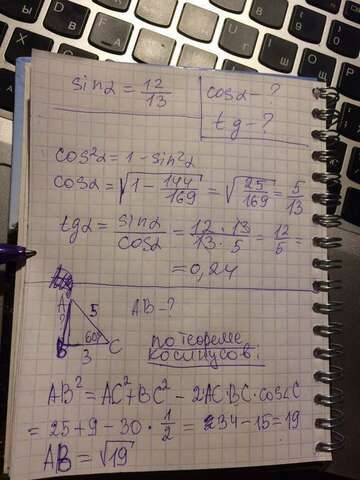 sinα = 12/13
cosα - ?
tg - ?
cos²α = 1 - sin²α
cosα = √(1 - 144/169) = √(25/169) = 5/13
tgα = sinα/cosα = 12·13/13·5 = 12/5 =
= 0,24
A
5
AB - ?
?
60°
B
3
C
по теореме
косинусов.
AB² = AC² + BC² - 2AC·BC·cos∠C
= 25 + 9 - 30 · 1/2 = 34 - 15 = 19
AB = √19